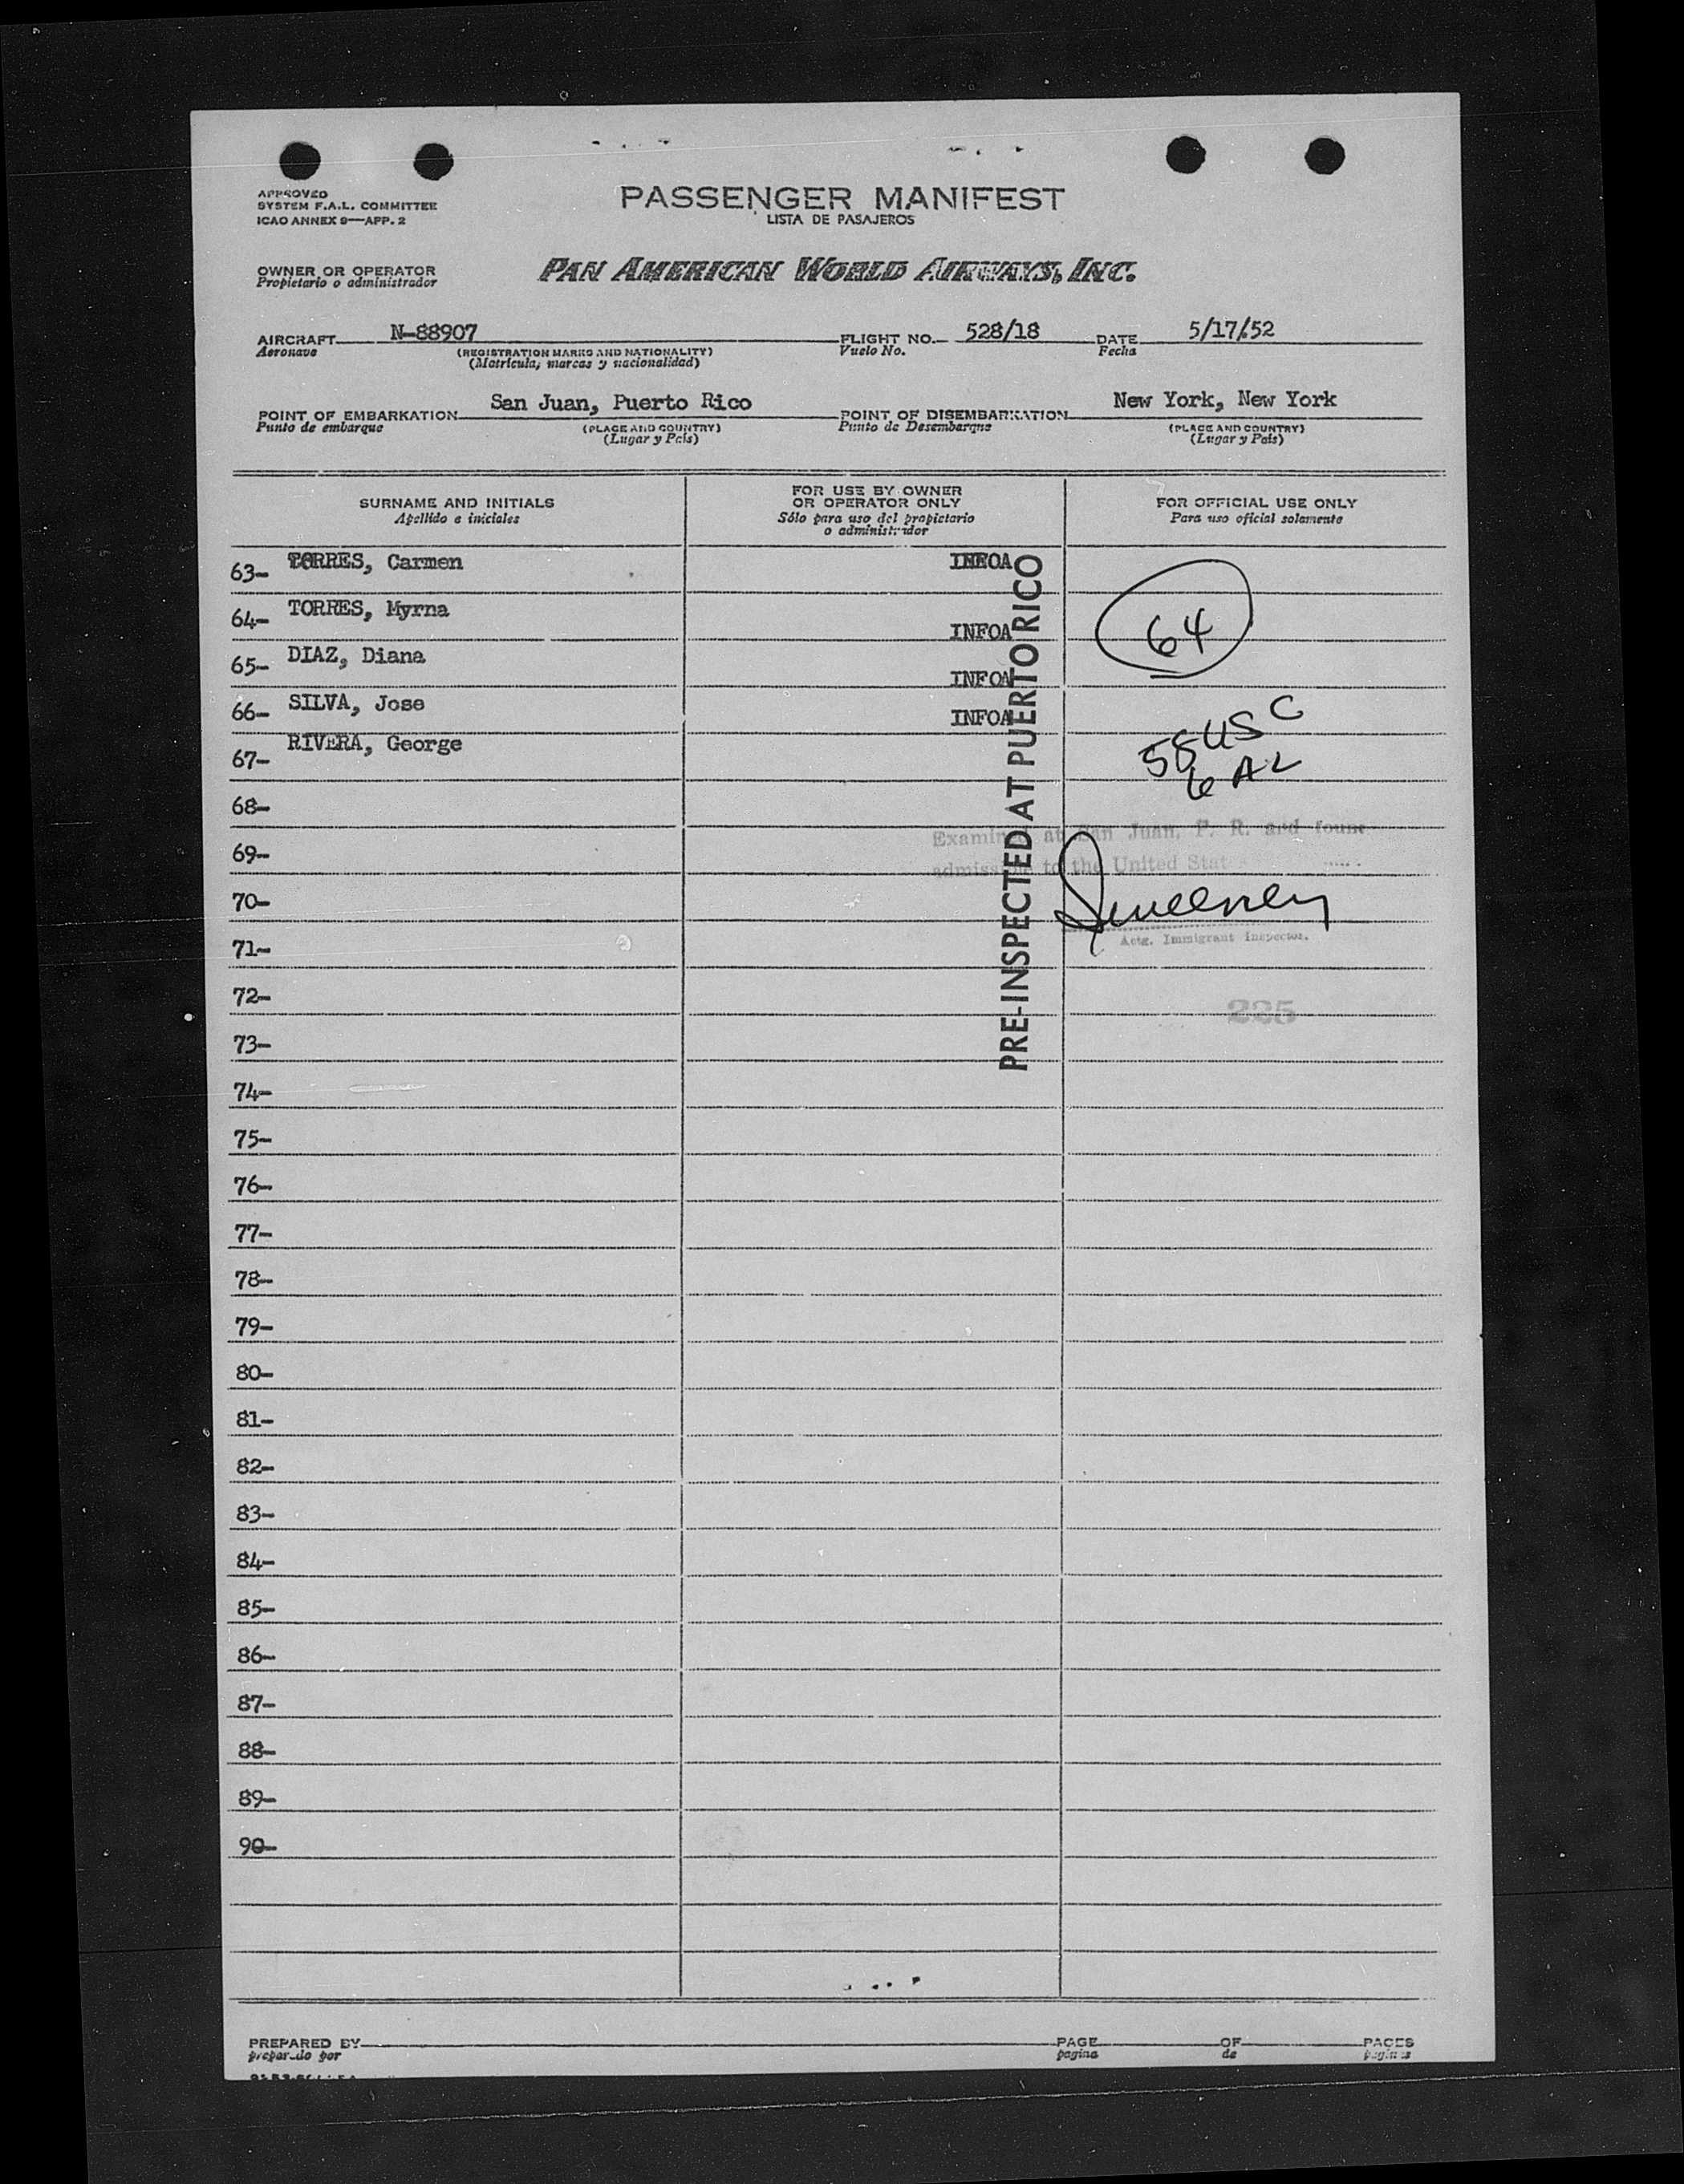 APPROVED
SYSTEM F.A.L. COMMITTEE
ICAO ANNEX 9—APP. 2
PASSENGER MANIFEST
LISTA DE PASAJEROS
OWNER OR OPERATOR
Propietario o administrador
PAN AMERICAN WORLD AIRWAYS, INC.
AIRCRAFT N-88907
Aeronave
(REGISTRATION MARKS AND NATIONALITY)
(Matrícula, marcas y nacionalidad)
FLIGHT NO. 528/18
Vuelo No.
DATE 5/17/52
Fecha
POINT OF EMBARKATION San Juan, Puerto Rico
Punto de embarque
(PLACE AND COUNTRY)
(Lugar y País)
POINT OF DISEMBARKATION New York, New York
Punto de Desembarque
(PLACE AND COUNTRY)
(Lugar y País)
SURNAME AND INITIALS
Apellido e iniciales
FOR USE BY OWNER
OR OPERATOR ONLY
Sólo para uso del propietario
o administrador
FOR OFFICIAL USE ONLY
Para uso oficial solamente
63- TORRES, Carmen INFOA
64- TORRES, Myrna INFOA
65- DIAZ, Diana INFOA
66- SILVA, Jose INFOA
67- RIVERA, George
68-
69-
70-
71-
72-
73-
74-
75-
76-
77-
78-
79-
80-
81-
82-
83-
84-
85-
86-
87-
88-
89-
90-
PRE-INSPECTED AT PUERTO RICO
64
58 USC
6 AL
Examined at San Juan, P. R. and found
admissible to the United Stat
Sweeney
Actg. Immigrant Inspector.
225
PREPARED BY
preparado por
PAGE OF PAGES
pagina de paginas